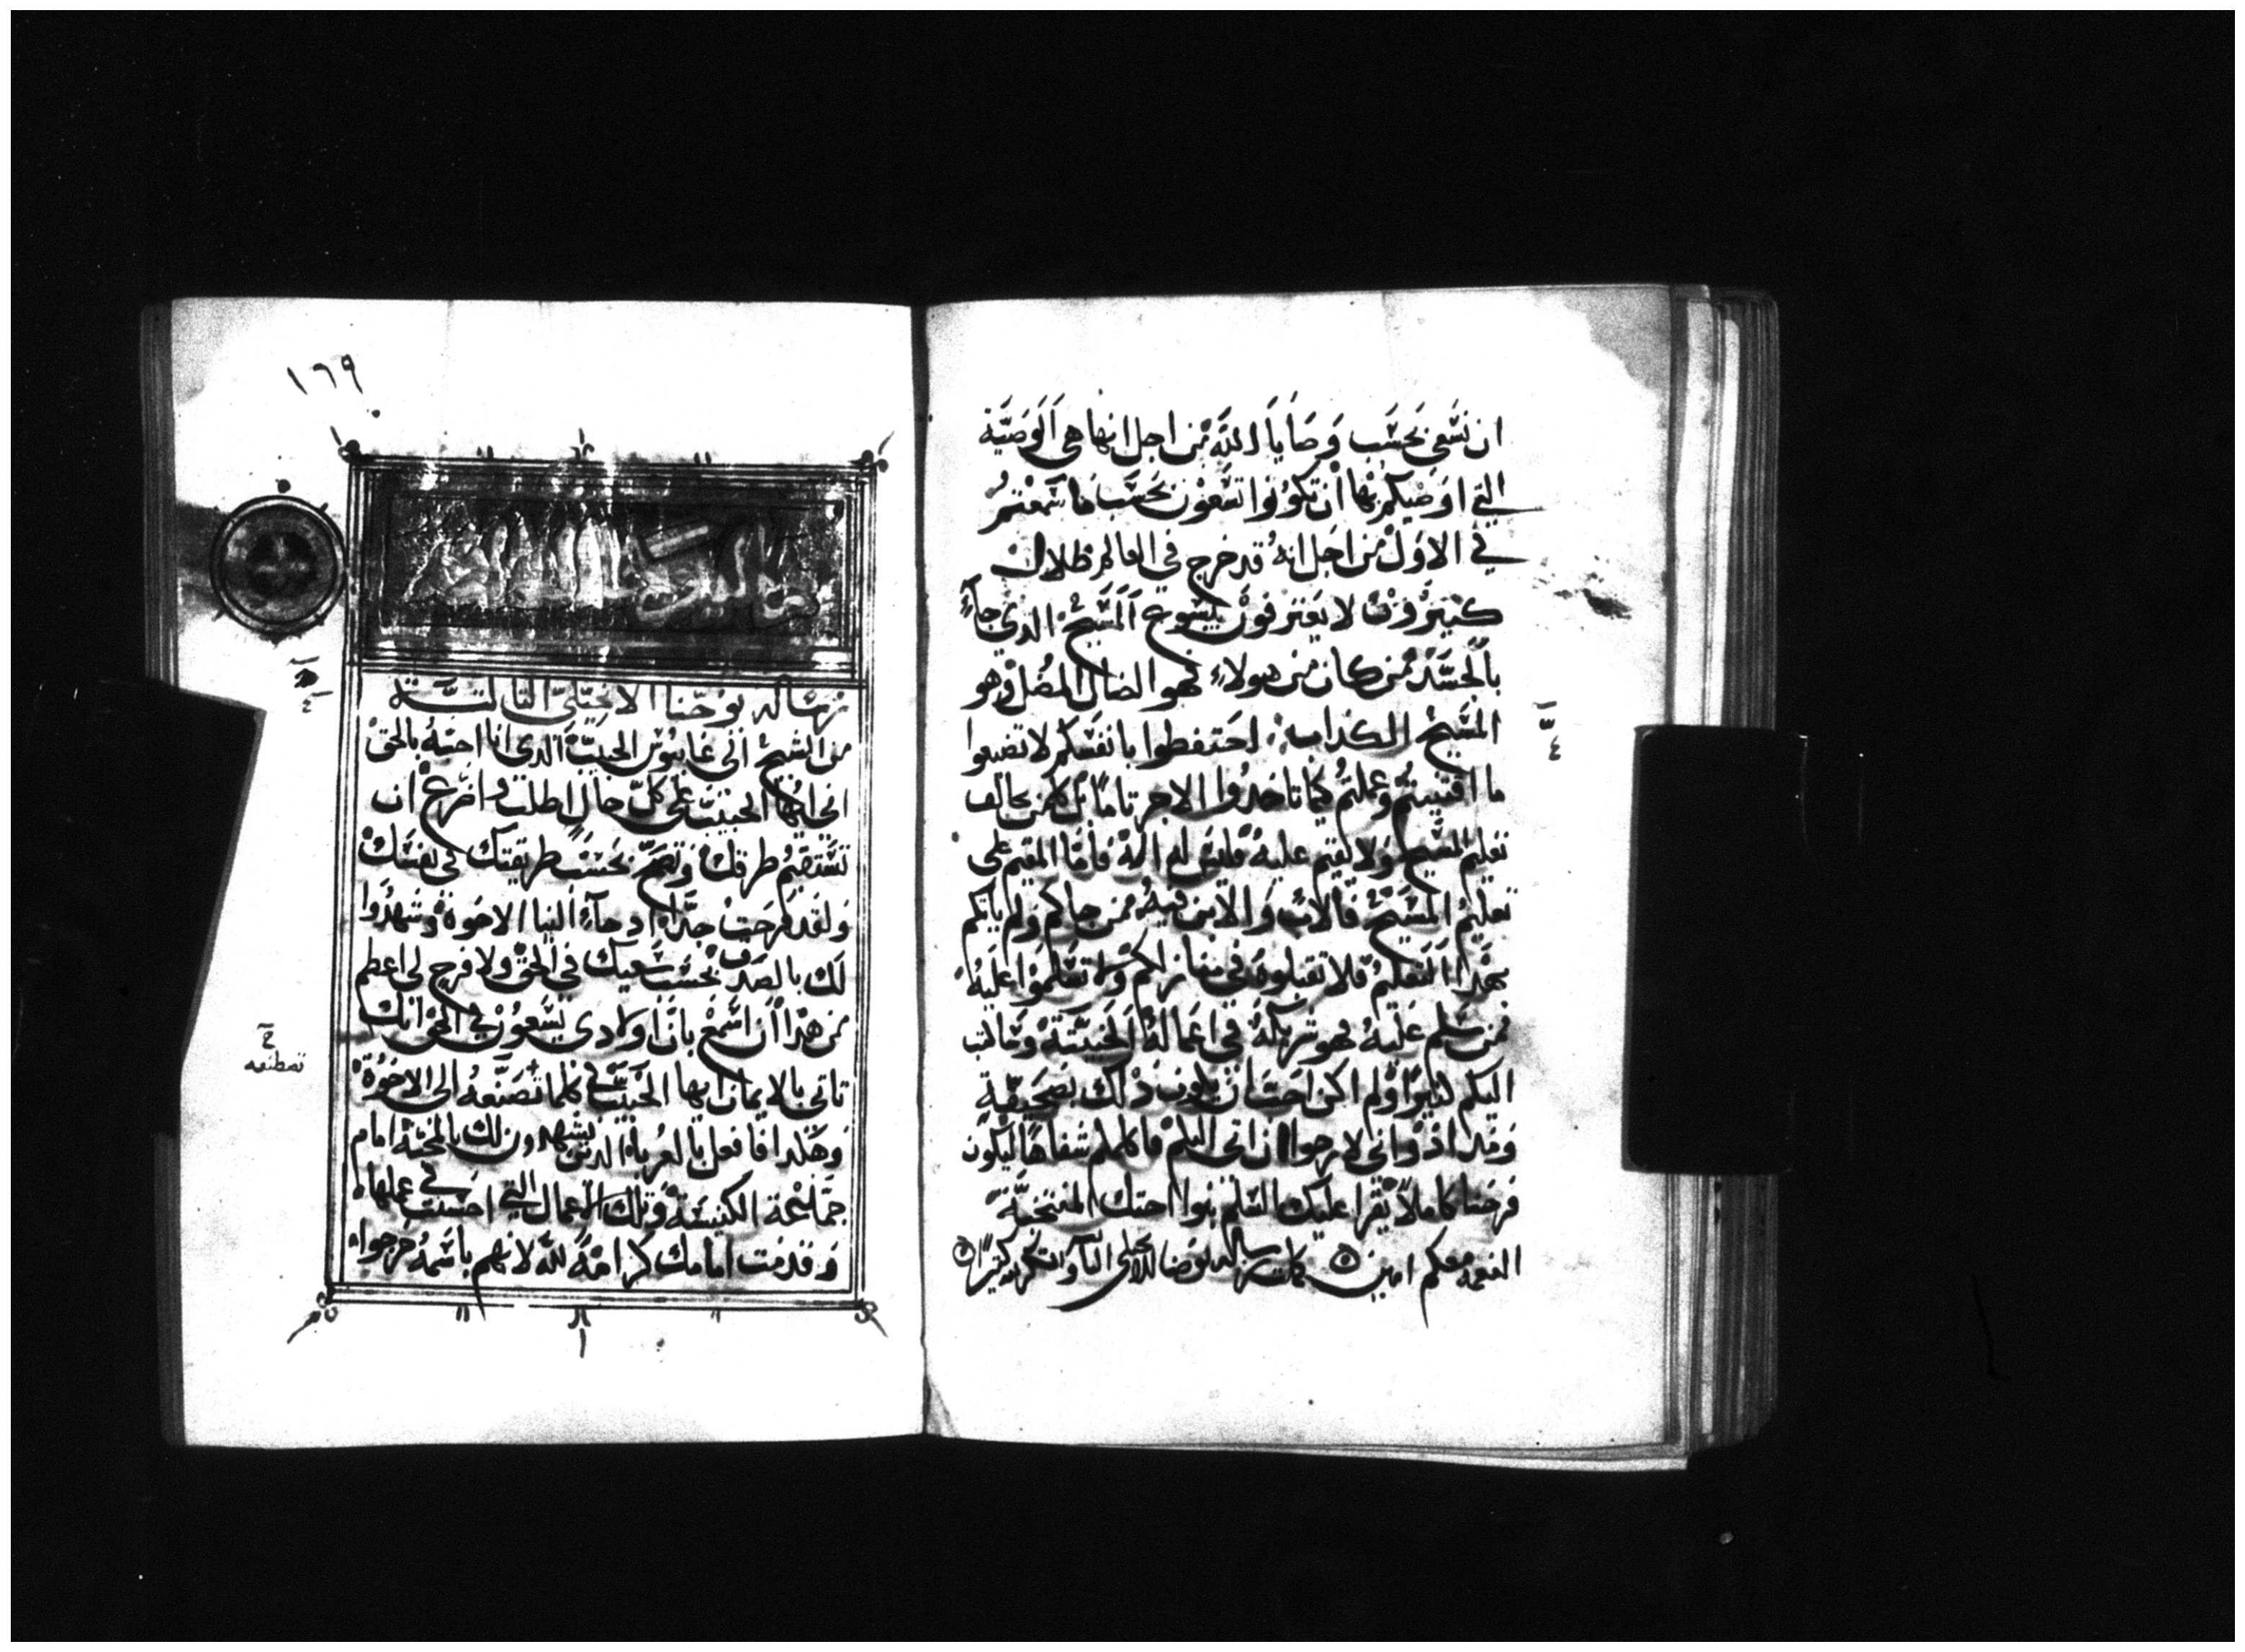 ان نسعى بحسب وصايا الله من اجل انها هي الوصية
التي اوصيكم بها ان تكونوا تسعون بحسب ما سمعتم
في الاول من اجل انه قد خرج في العالم ظلال
كثيرون لا يعترفون بيسوع المسيح الذي جآء
بالجسد فمن كان من هولاء فهو الضال المضل وهو
المسيح الكذاب احتفظوا بانفسكم لا تضيعوا
ما اقتنيتم وعملتم كيما تاخدوا الاجر تاما كل من يخالف
تعليم المسيح ولا يقيم عليه فليس له اله فاما المقيم على
تعليم المسيح فالاب والابن فيه فمن جاكم ولم ياتكم
بهدا التعليم فلا تقبلوه في منازلكم ولا تسلموا عليه
فمن سلم عليه فهو شريكه في اعماله الخبيثة وكاتب
اليكم كثيرا ولم اكن احب ان يكون ذلك بصحيفة
ومداد واني لارجوا ان اتي اليكم فاكلمكم شفاها ليكون
فرحنا كاملا يقرا عليك السلم بنوا اختك المنتخبة
النعمة معكم امين كملت رسالة يوحنا
١٦٩
رسالة يوحنا الانجيلي الثالثة
من الشيخ الى غايوس الحبيب الذي انا احبه بالحق
ايها الحبيب على كل حال اطلب واضرع ان
تستقيم طرقك وتصح بحسب طريقتك في نفسك
ولقد فرحت جدا اد جآء الينا الاخوة وشهدوا
لك بالصدق بحسب سعيك في الحق ولا فرح لي اعظم
من هدا ان اسمع بان اولادي يسعون في الحق انك
تاتي بالايمان ايها الحبيب في كلما تصنعه الى الاخوة
تصطنعه
وهكدا فافعل بالغرباء الدين يشهدون لك بالمحبة امام
جماعة الكنيسة وتلك الاعمال التي احسنت في عملها
وقدمت امامك كرامة لله لانهم باسمه خرجوا